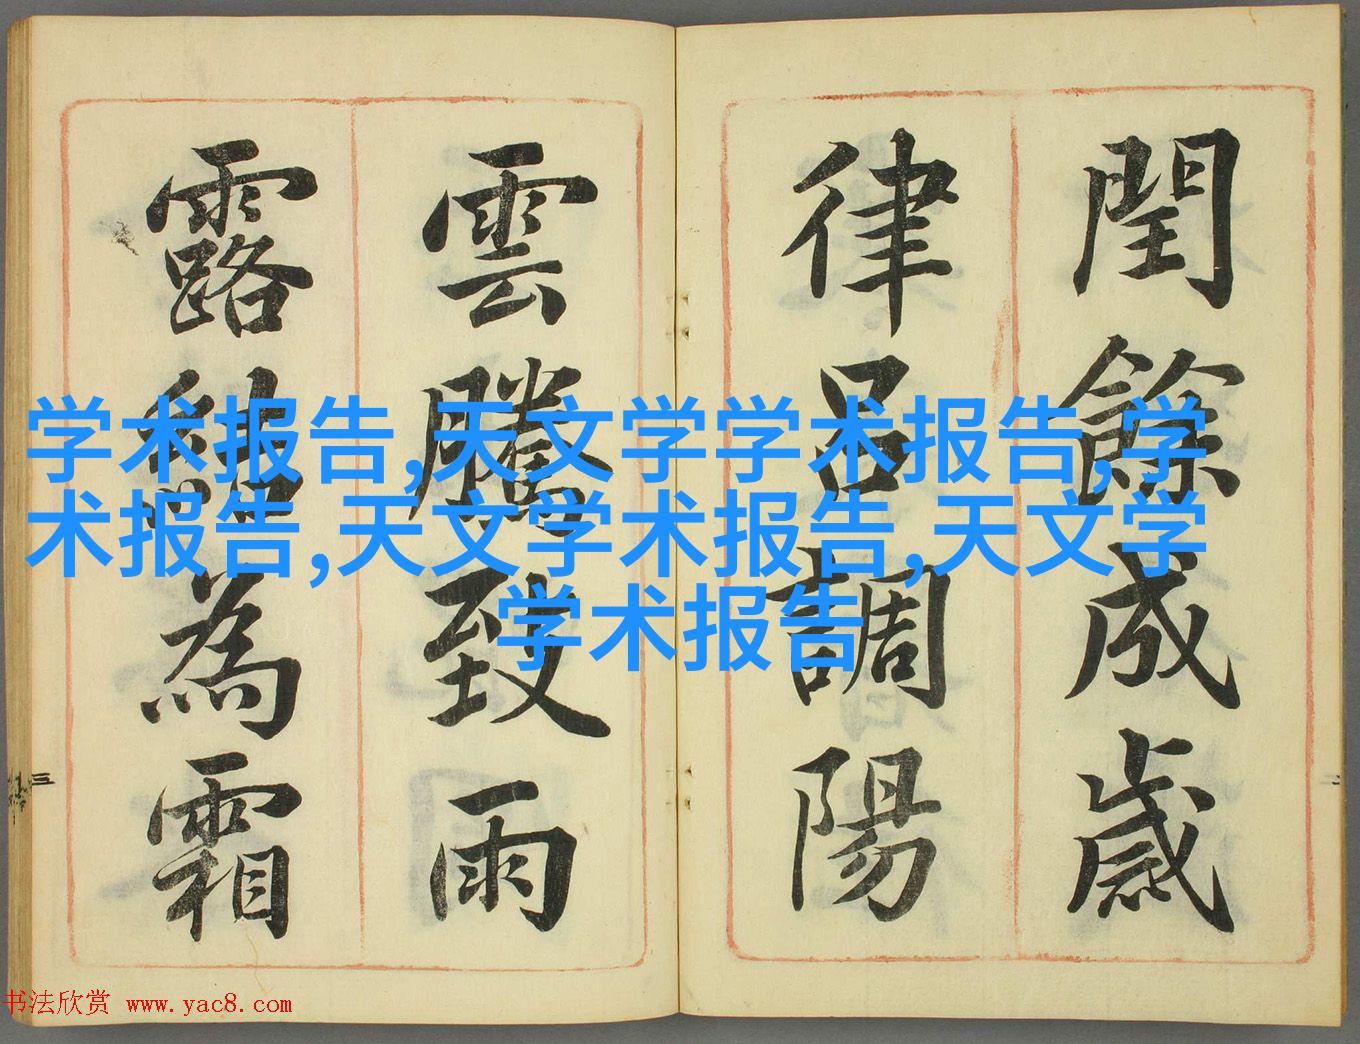 閏餘成歲
律呂調陽
雲騰致雨
露結為霜
学术报告,天文学学术报告,学
术报告,天文学术报告,天文学
学术报告
三
二
书法欣赏 www.yac8.com